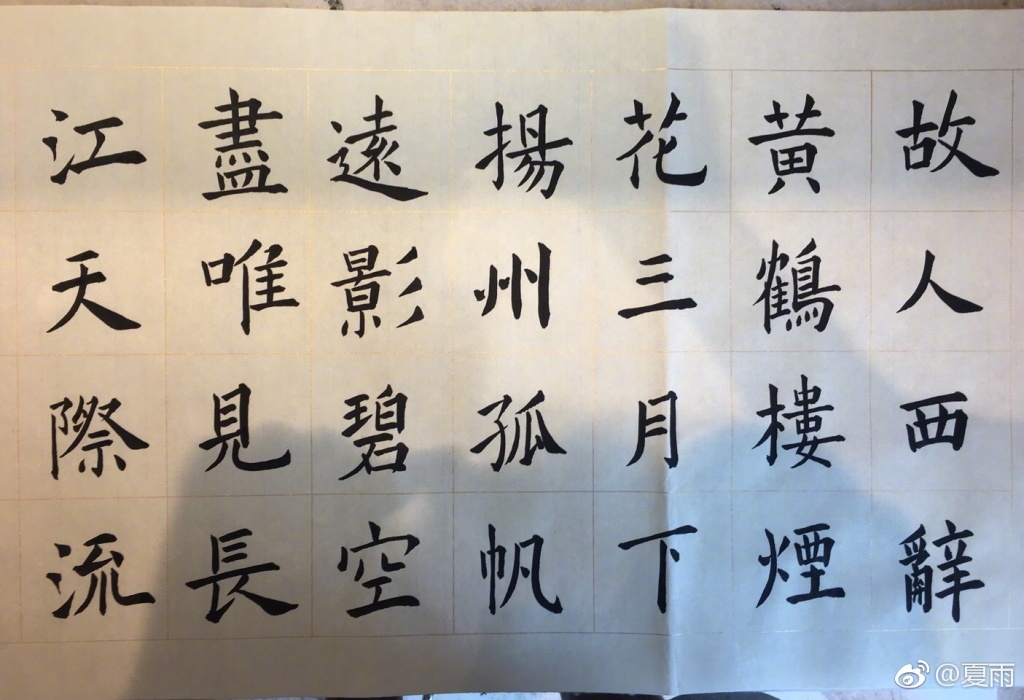 故人西辭
黃鶴樓煙
花三月下
揚州孤帆
遠影碧空
盡唯見長
江天際流
@夏雨